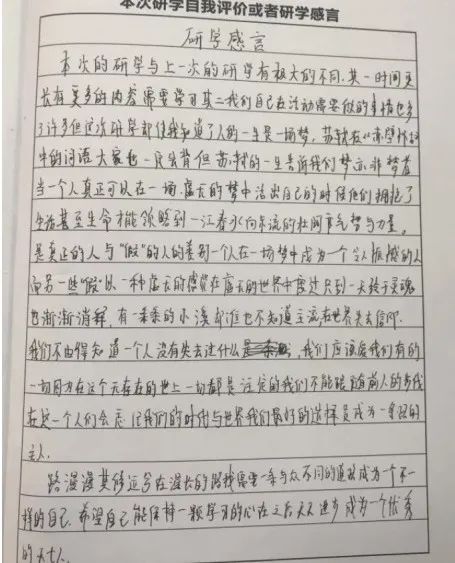 本次研学自我评价或者研学感言
研学感言
本次的研学与上一次的研学有极大的不同，其一时间更
长有更多的内容需要学习其二我们自己在活动需要做的事情也多
了许多但这次研学却使我知道了人的一生是一场梦，苏轼在《赤壁怀古》
中的词语大家也一定会背但苏轼的一生告诉我们梦亦非梦着
当一个人真正可以在一场虚长的梦中活出自己的时候他们拥抱了
生活甚至生命才能领略到一江春水向东流的壮阔气势与力量。
是真正的人与"假"的人的差别一个人在一场梦中成为一个令人振撼的人
而另一些"假"以一种虚长的感觉在虚长的世界中度过只到一天终于灵魂
也渐渐消释，有一条条的小溪却谁也不知道主流在世界失去信仰。
我们不由得知道一个人没有失去过什么，我们应该爱我们有的
一切因为在这个无存在的世上一切都是注定的我们不能跟随前人的步伐
在这一个人们会忘记我们的时代与世界我们最好的选择是成为一条路的
主人。
路漫漫其修远兮在漫长的路我需要一条与众不同的道路成为一个不一
样的自己，希望自己能保持一颗学习的心在之后天天进步成为一个优秀
的人。